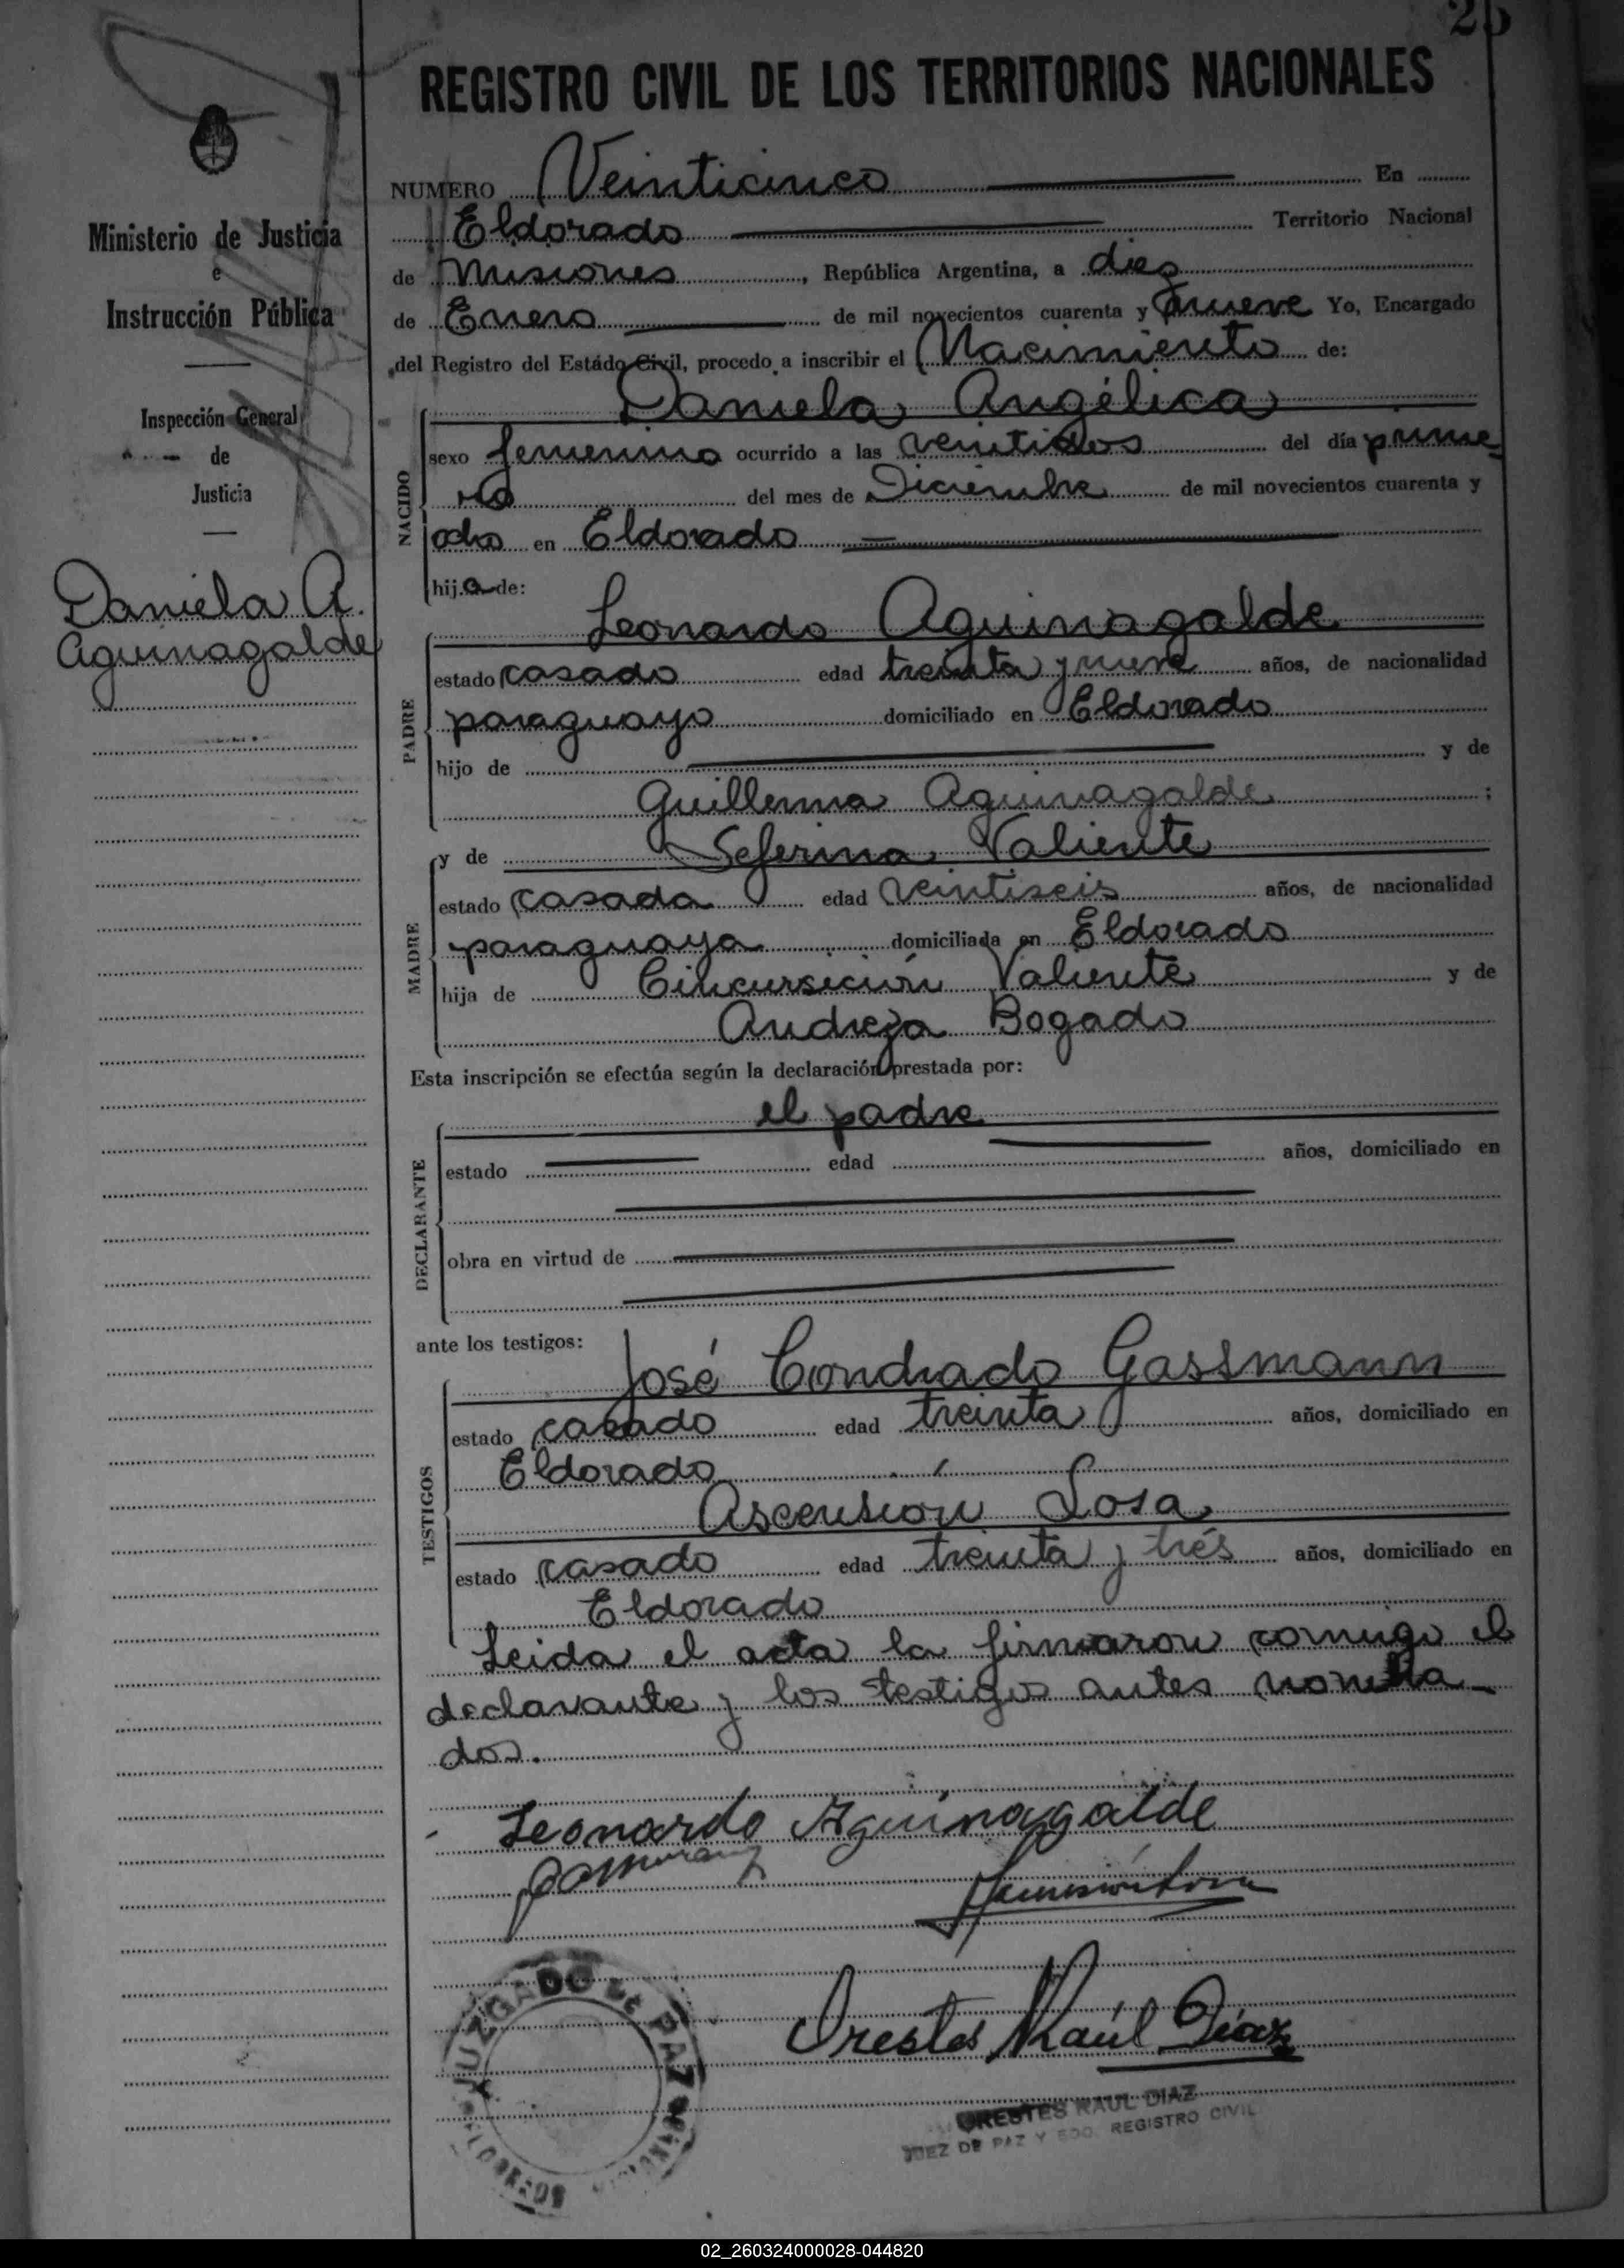 25
REGISTRO CIVIL DE LOS TERRITORIOS NACIONALES
Ministerio de Justicia
e
Instrucción Pública
Inspección General
de
Justicia
Daniela A.
Aguinagalde
NUMERO Veinticinco En
Eldorado Territorio Nacional
de Misiones, República Argentina, a diez
de Enero de mil novecientos cuarenta y nueve Yo, Encargado
del Registro del Estado Civil, procedo a inscribir el Nacimiento de:
NACIDO
Daniela Angélica
sexo femenino ocurrido a las veintidos del día prime-
ro del mes de Diciembre de mil novecientos cuarenta y
ocho en Eldorado
hija de:
PADRE
Leonardo Aguinagalde
estado casado edad treinta y nueve años, de nacionalidad
paraguayo domiciliado en Eldorado
hijo de y de
Guillerma Aguinagalde ;
MADRE
y de Seferina Valiente
estado casada edad veintiseis años, de nacionalidad
paraguaya domiciliada en Eldorado
hija de Valiente y de
Andreza Bogado
Esta inscripción se efectúa según la declaración prestada por:
DECLARANTE
el padre
estado edad años, domiciliado en
obra en virtud de
ante los testigos:
TESTIGOS
José Condrado Gassmann
estado casado edad treinta años, domiciliado en
Eldorado
Ascensión Sosa
estado casado edad treinta y trés años, domiciliado en
Eldorado
Leida el acta la firmaron conmigo el
declarante y los testigos antes nombra-
dos.
Leonardo Aguinagalde
Orestes Raúl Díaz
JUZGADO de PAZ
ELDORADO
ORESTES RAUL DIAZ
JUEZ DE PAZ Y EDO. REGISTRO CIVIL
02_260324000028-044820